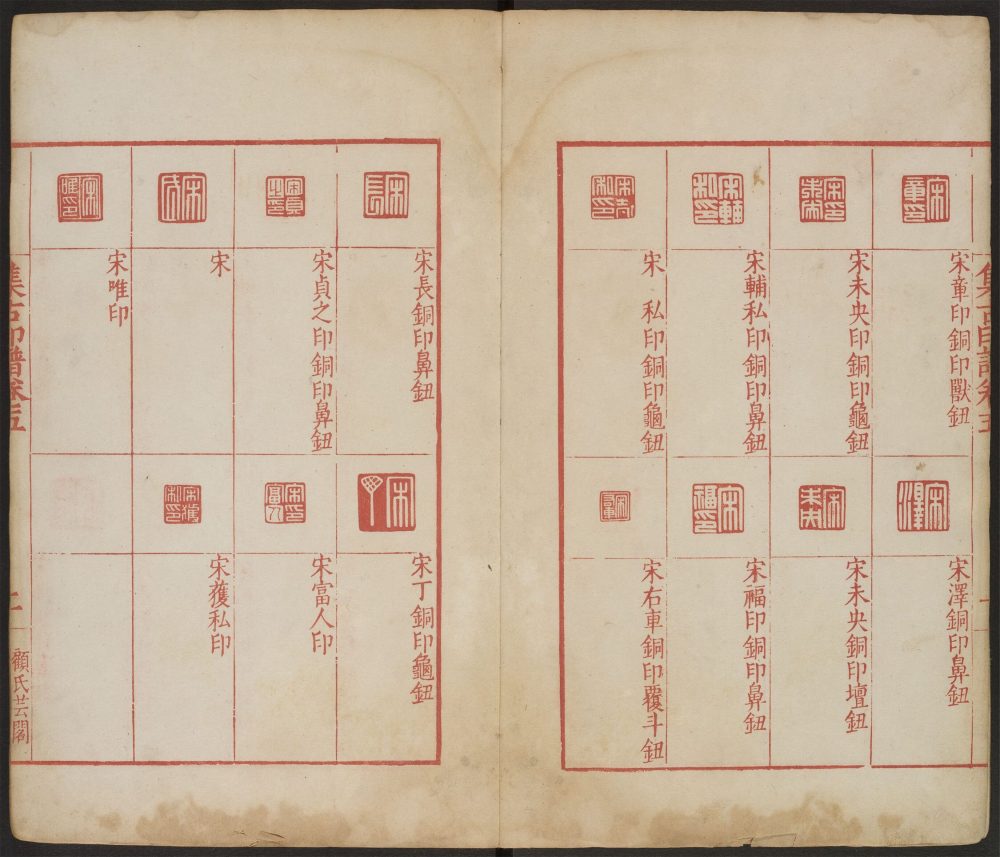 集古印譜卷五
一
宋章印銅印獸鈕
宋未央印銅印龜鈕
宋輔私印銅印鼻鈕
宋 私印銅印龜鈕
宋澤銅印鼻鈕
宋未央銅印壇鈕
宋福印銅印鼻鈕
宋右車銅印覆斗鈕
宋長銅印鼻鈕
宋貞之印銅印鼻鈕
宋
宋唯印
宋丁銅印龜鈕
宋富人印
宋獲私印
集古印譜卷五
二
顧氏芸閣